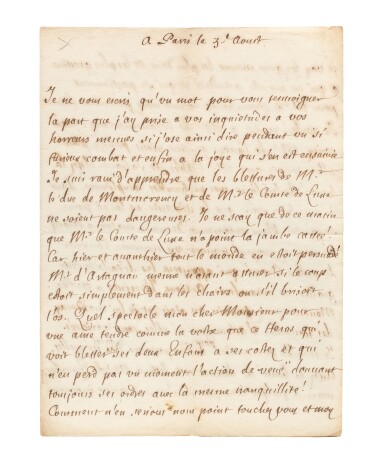 A Paris le 3.e Aoust
Je ne vous escris qu'vn mot pour vous tesmoigner
la part que j'ay prise a vos inquietudes a vos
horreurs mesmes si j'ose ainsi dire pendant vn si
furieux combat et enfin a la joye qui s'en est ensuivie
Je suis ravi d'apprendre que les blessures de M.r
le duc de Montmorency et de M.r le Comte de Luxe
ne soient pas dangereuses. Je ne scay que de ce matin
que M.r le Comte de Luxe n'a point la jambe cassée
Car hier et avanthier tout le monde en estoit persuadé
M.r d'Artagnan mesme n'avoit asseurer si le coup
estoit simplement dans les chairs ou s'il brisoit
l'os. Quel spectacle mon cher Monsieur pour
vne ame tendre comme la vostre que ce Heros qui
voit blesser ses deux Enfans a ses costez et qui
n'en perd pas vn moment l'action de veüe donnant
tousjours ses ordres avec la mesme tranquillité!
Comment n'en serions nous point touchez vous et moy